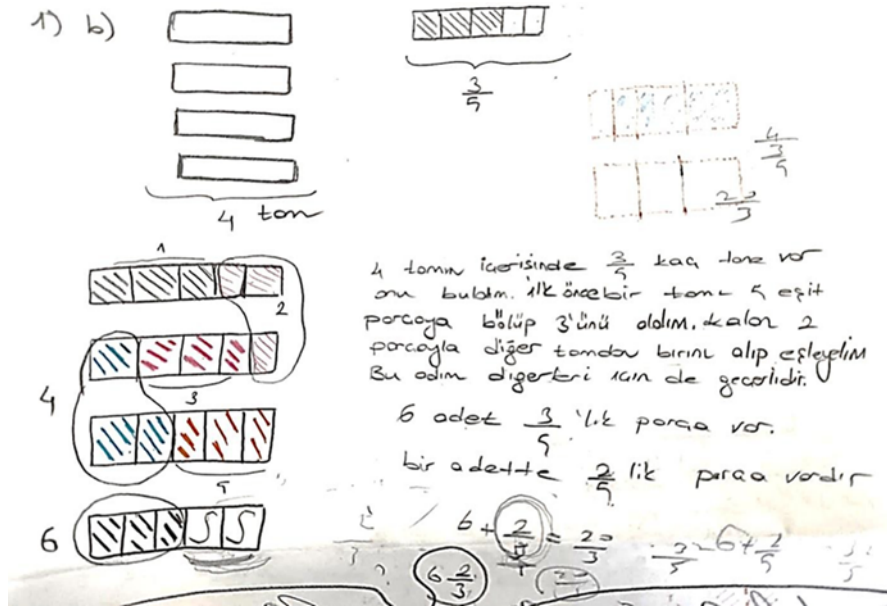 1) b)
3/5
4 tam
4
3/5
20
3
1
2
3
4
5
6
4 tamın içerisinde 3/5 kaç tane var
onu buldm. ilk önce bir tamı 5 eşit
parçaya bölüp 3'ünü aldım. kalan 2
parçayla diğer tamdan birini alıp eşleyelim
Bu adım diğerleri için de geçerlidir.
6 adet 3/5 'lik parça var.
bir adette 2/5 lik parça vardır
6 + 2/5 = 20/3
6 2/3